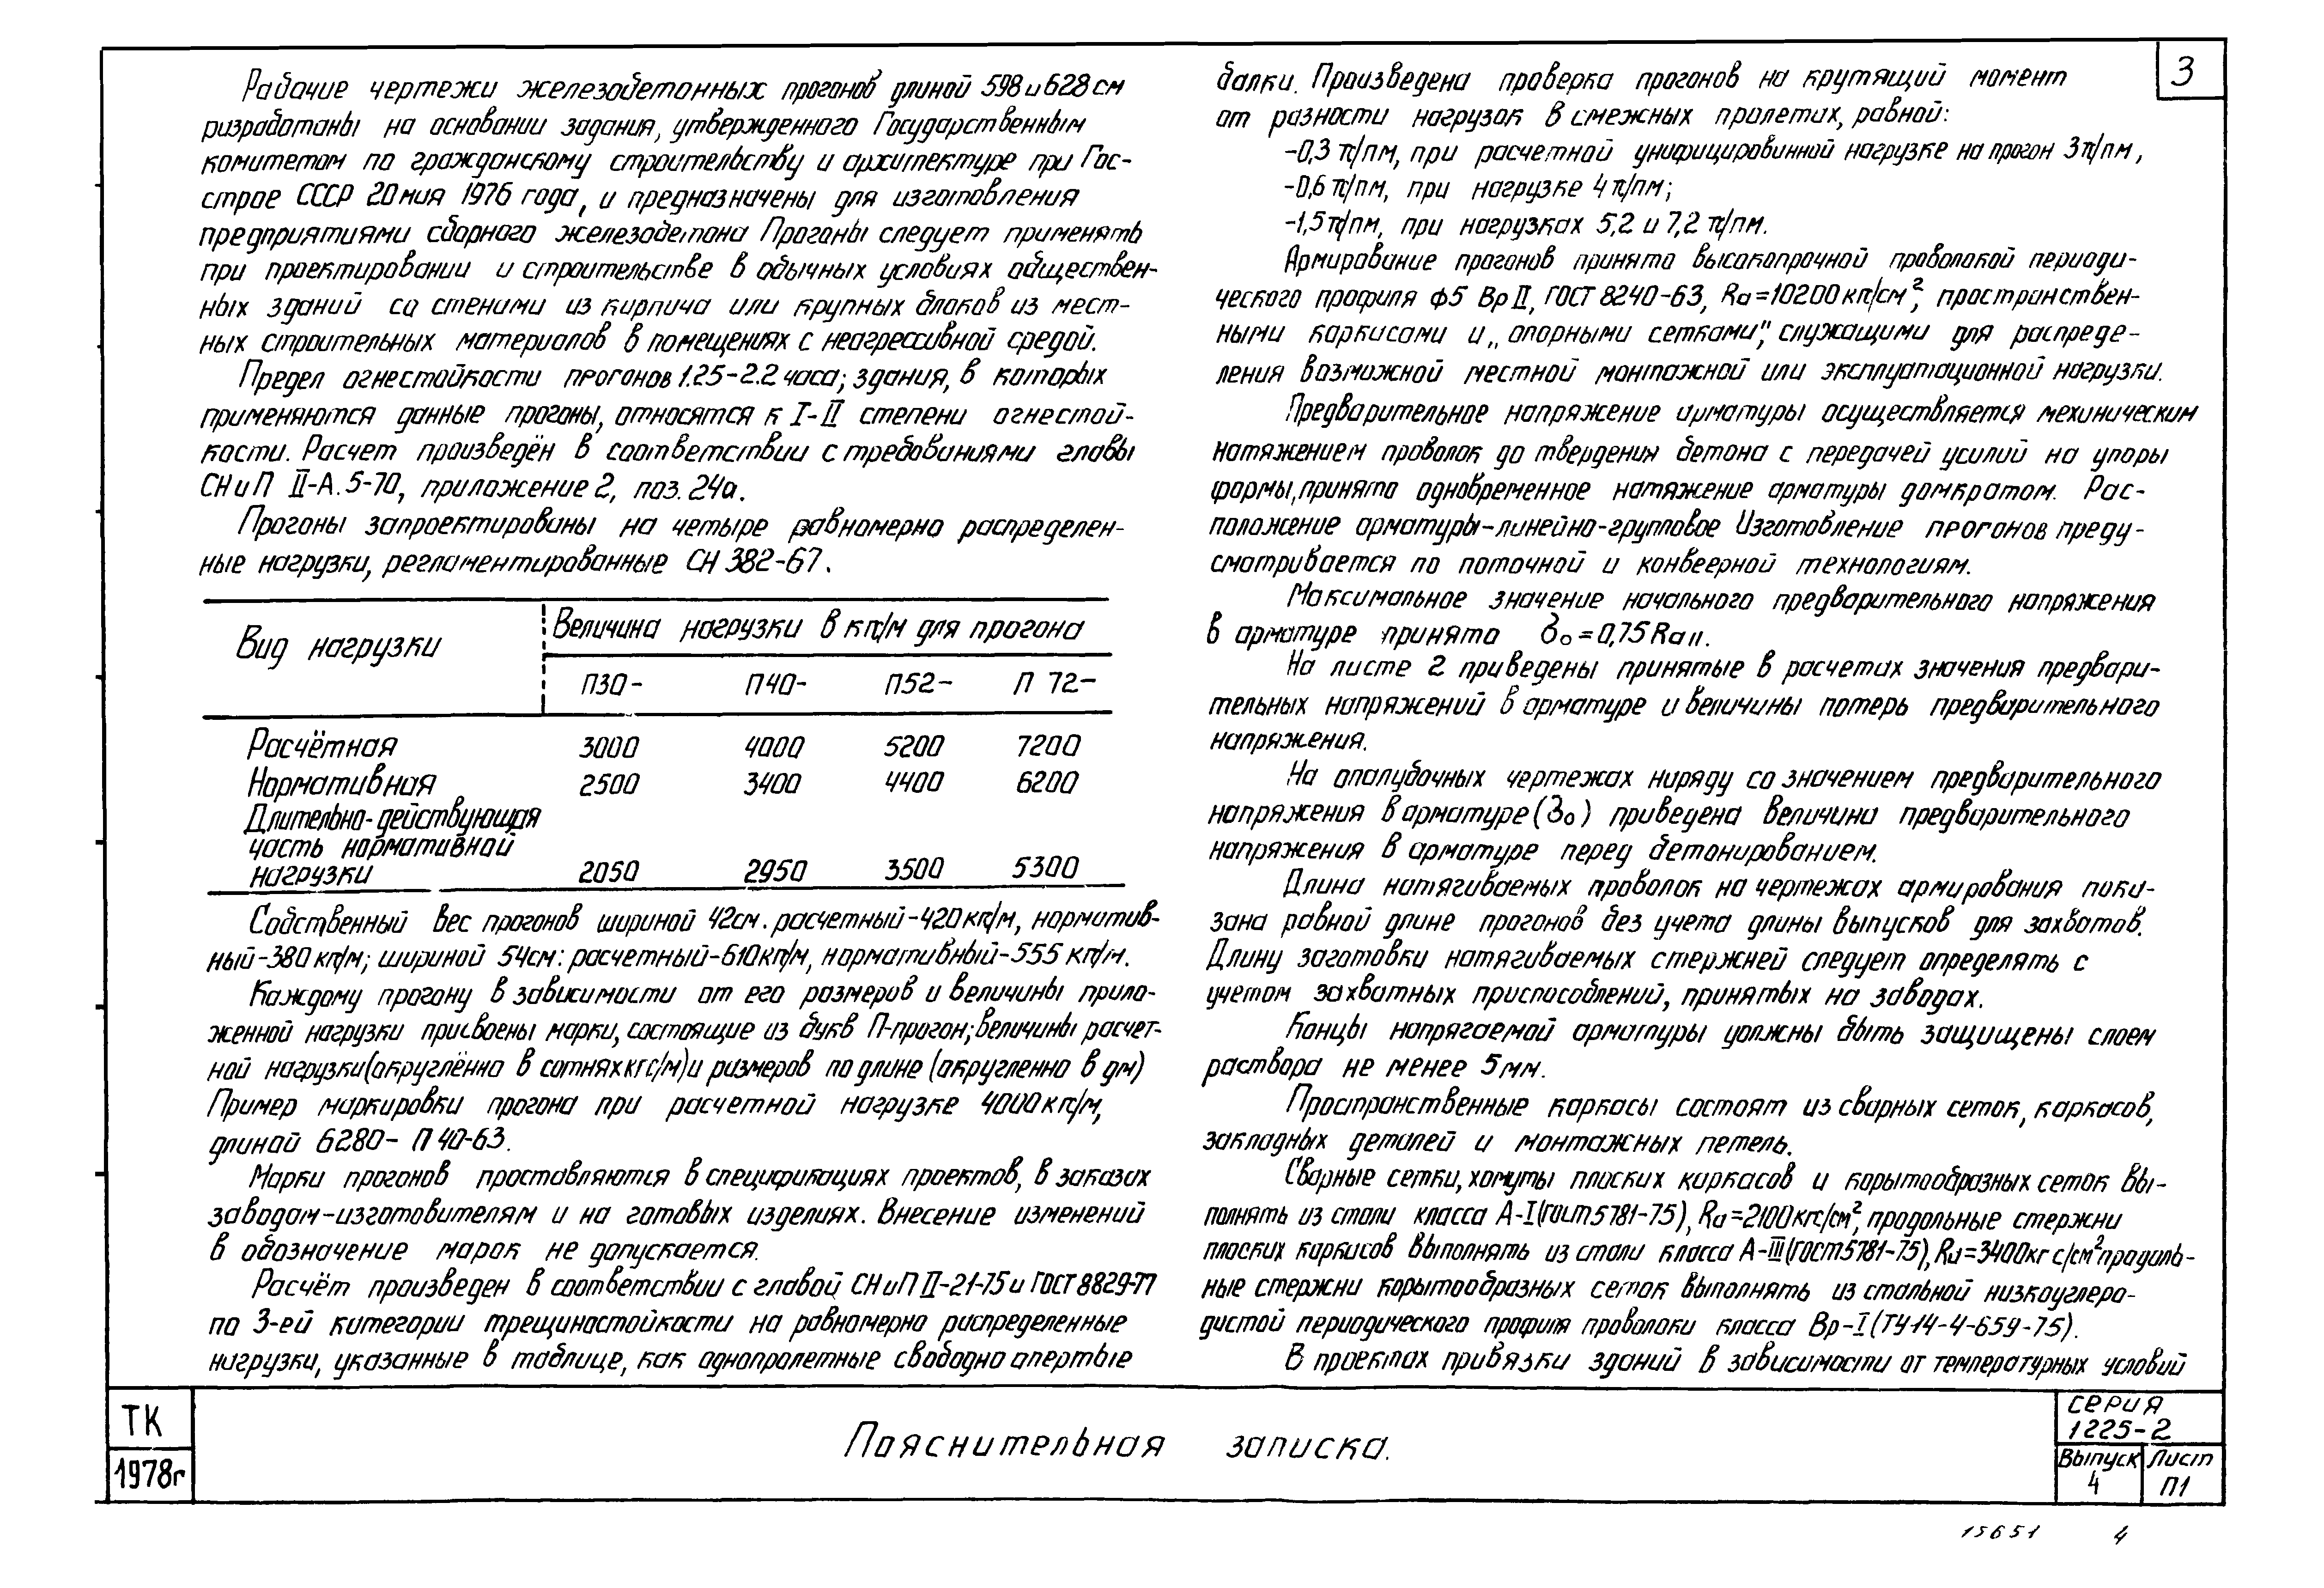 3
Рабочие чертежи железобетонных прогонов длиной 598 и 628 см
разработаны на основании задания, утвержденного Государственным
комитетом по гражданскому строительству и архитектуре при Гос-
строе СССР 20 мая 1976 года, и предназначены для изготовления
предприятиями сборного железобетона Прогоны следует применять
при проектировании и строительстве в обычных условиях обществен-
ных зданий со стенами из кирпича или крупных блоков из мест-
ных строительных материалов в помещениях с неагрессивной средой.
Предел огнестойкости прогонов 1.25-2.2 часа; здания, в которых
применяются данные прогоны, относятся к I-II степени огнестой-
кости. Расчет произведён в соответствии с требованиями главы
СНиП II-А.5-70, приложение 2, поз. 24а.
Прогоны запроектированы на четыре равномерно распределен-
ные нагрузки, регламентированные СН 382-67.
Вид нагрузки
Величина нагрузки в кг/м для прогона
П30- П40- П52- П 72-
Расчётная 3000 4000 5200 7200
Нормативная 2500 3400 4400 6200
Длительно-действующая
часть нормативной
нагрузки 2050 2950 3500 5300
Собственный вес прогонов шириной 42см. расчетный-420 кг/м, норматив-
ный-380 кг/м; шириной 54см: расчетный-610кг/м, нормативный-555 кг/м.
Каждому прогону в зависимости от его размеров и величины прило-
женной нагрузки присвоены марки, состоящие из букв П-прогон; величины расчет-
ной нагрузки (округлённо в сотнях кгс/м) и размеров по длине (округленно в дм)
Пример маркировки прогона при расчетной нагрузке 4000 кг/м,
длиной 6280- П 40-63.
Марки прогонов проставляются в спецификациях проектов, в заказах
заводам-изготовителям и на готовых изделиях. Внесение изменений
в обозначение марок не допускается.
Расчёт произведен в соответствии с главой СНиП II-21-75 и ГОСТ 8829-77
по 3-ей категории трещиностойкости на равномерно распределенные
нагрузки, указанные в таблице, как однопролетные свободно опертые
балки. Произведена проверка прогонов на крутящий момент
от разности нагрузок в смежных пролетах, равной:
-0,3 т/пм, при расчетной унифицированной нагрузке на прогон 3т/пм,
-0,6 т/пм, при нагрузке 4 т/пм;
-1,5т/пм, при нагрузках 5,2 и 7,2 т/пм.
Армирование прогонов принято высокопрочной проволокой периоди-
ческого профиля ф5 Вр II, ГОСТ 8240-63, Rа=10200 кг/см², пространствен-
ными каркасами и „опорными сетками", служащими для распреде-
ления возможной местной монтажной или эксплуатационной нагрузки.
Предварительное напряжение арматуры осуществляется механическим
натяжением проволок до твердения бетона с передачей усилий на упоры
формы, принято одновременное натяжение арматуры домкратом. Рас-
положение арматуры-линейно-групповое Изготовление прогонов преду-
сматривается по поточной и конвеерной технологиям.
Максимальное значение начального предварительного напряжения
в арматуре принято б₀=0,75 Rа II.
На листе 2 приведены принятые в расчетах значения предвари-
тельных напряжений в арматуре и величины потерь предварительного
напряжения.
На опалубочных чертежах наряду со значением предварительного
напряжения в арматуре (б₀) приведена величина предварительного
напряжения в арматуре перед бетонированием.
Длина натягиваемых проволок на чертежах армирования пока-
зана равной длине прогонов без учета длины выпусков для захватов.
Длину заготовки натягиваемых стержней следует определять с
учетом захватных приспособлений, принятых на заводах.
Концы напрягаемой арматуры должны быть защищены слоем
раствора не менее 5 мм.
Пространственные каркасы состоят из сварных сеток, каркасов,
закладных деталей и монтажных петель.
Сварные сетки, хомуты плоских каркасов и корытообразных сеток вы-
полнять из стали класса А-I (гост 5781-75), Rа=2100кгс/см², продольные стержни
плоских каркасов выполнять из стали класса А-III (гост 5781-75), Rа=3400кгс/см² продоль-
ные стержни корытообразных сеток выполнять из стальной низкоуглеро-
дистой периодического профиля проволоки класса Вр-I (ТУ14-4-659-75).
В проектах привязки зданий в зависимости от температурных условий
ТК
1978г
Пояснительная записка.
серия
1225-2
Выпуск
4
Лист
П1
15651 4